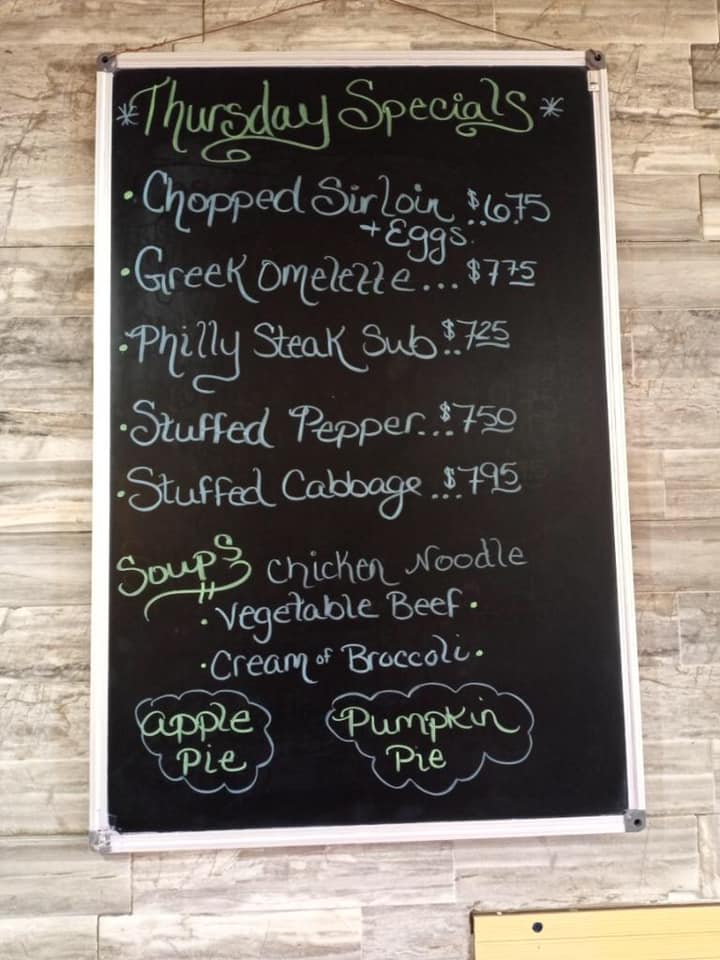 *Thursday Specials*
• Chopped Sirloin $675
+ Eggs
• Greek Omelette... $775
• Philly Steak Sub..$725
• Stuffed Pepper...$750
• Stuffed Cabbage...$795
Soups Chicken Noodle
• Vegetable Beef •
• Cream of Broccoli •
apple Pumpkin
Pie Pie